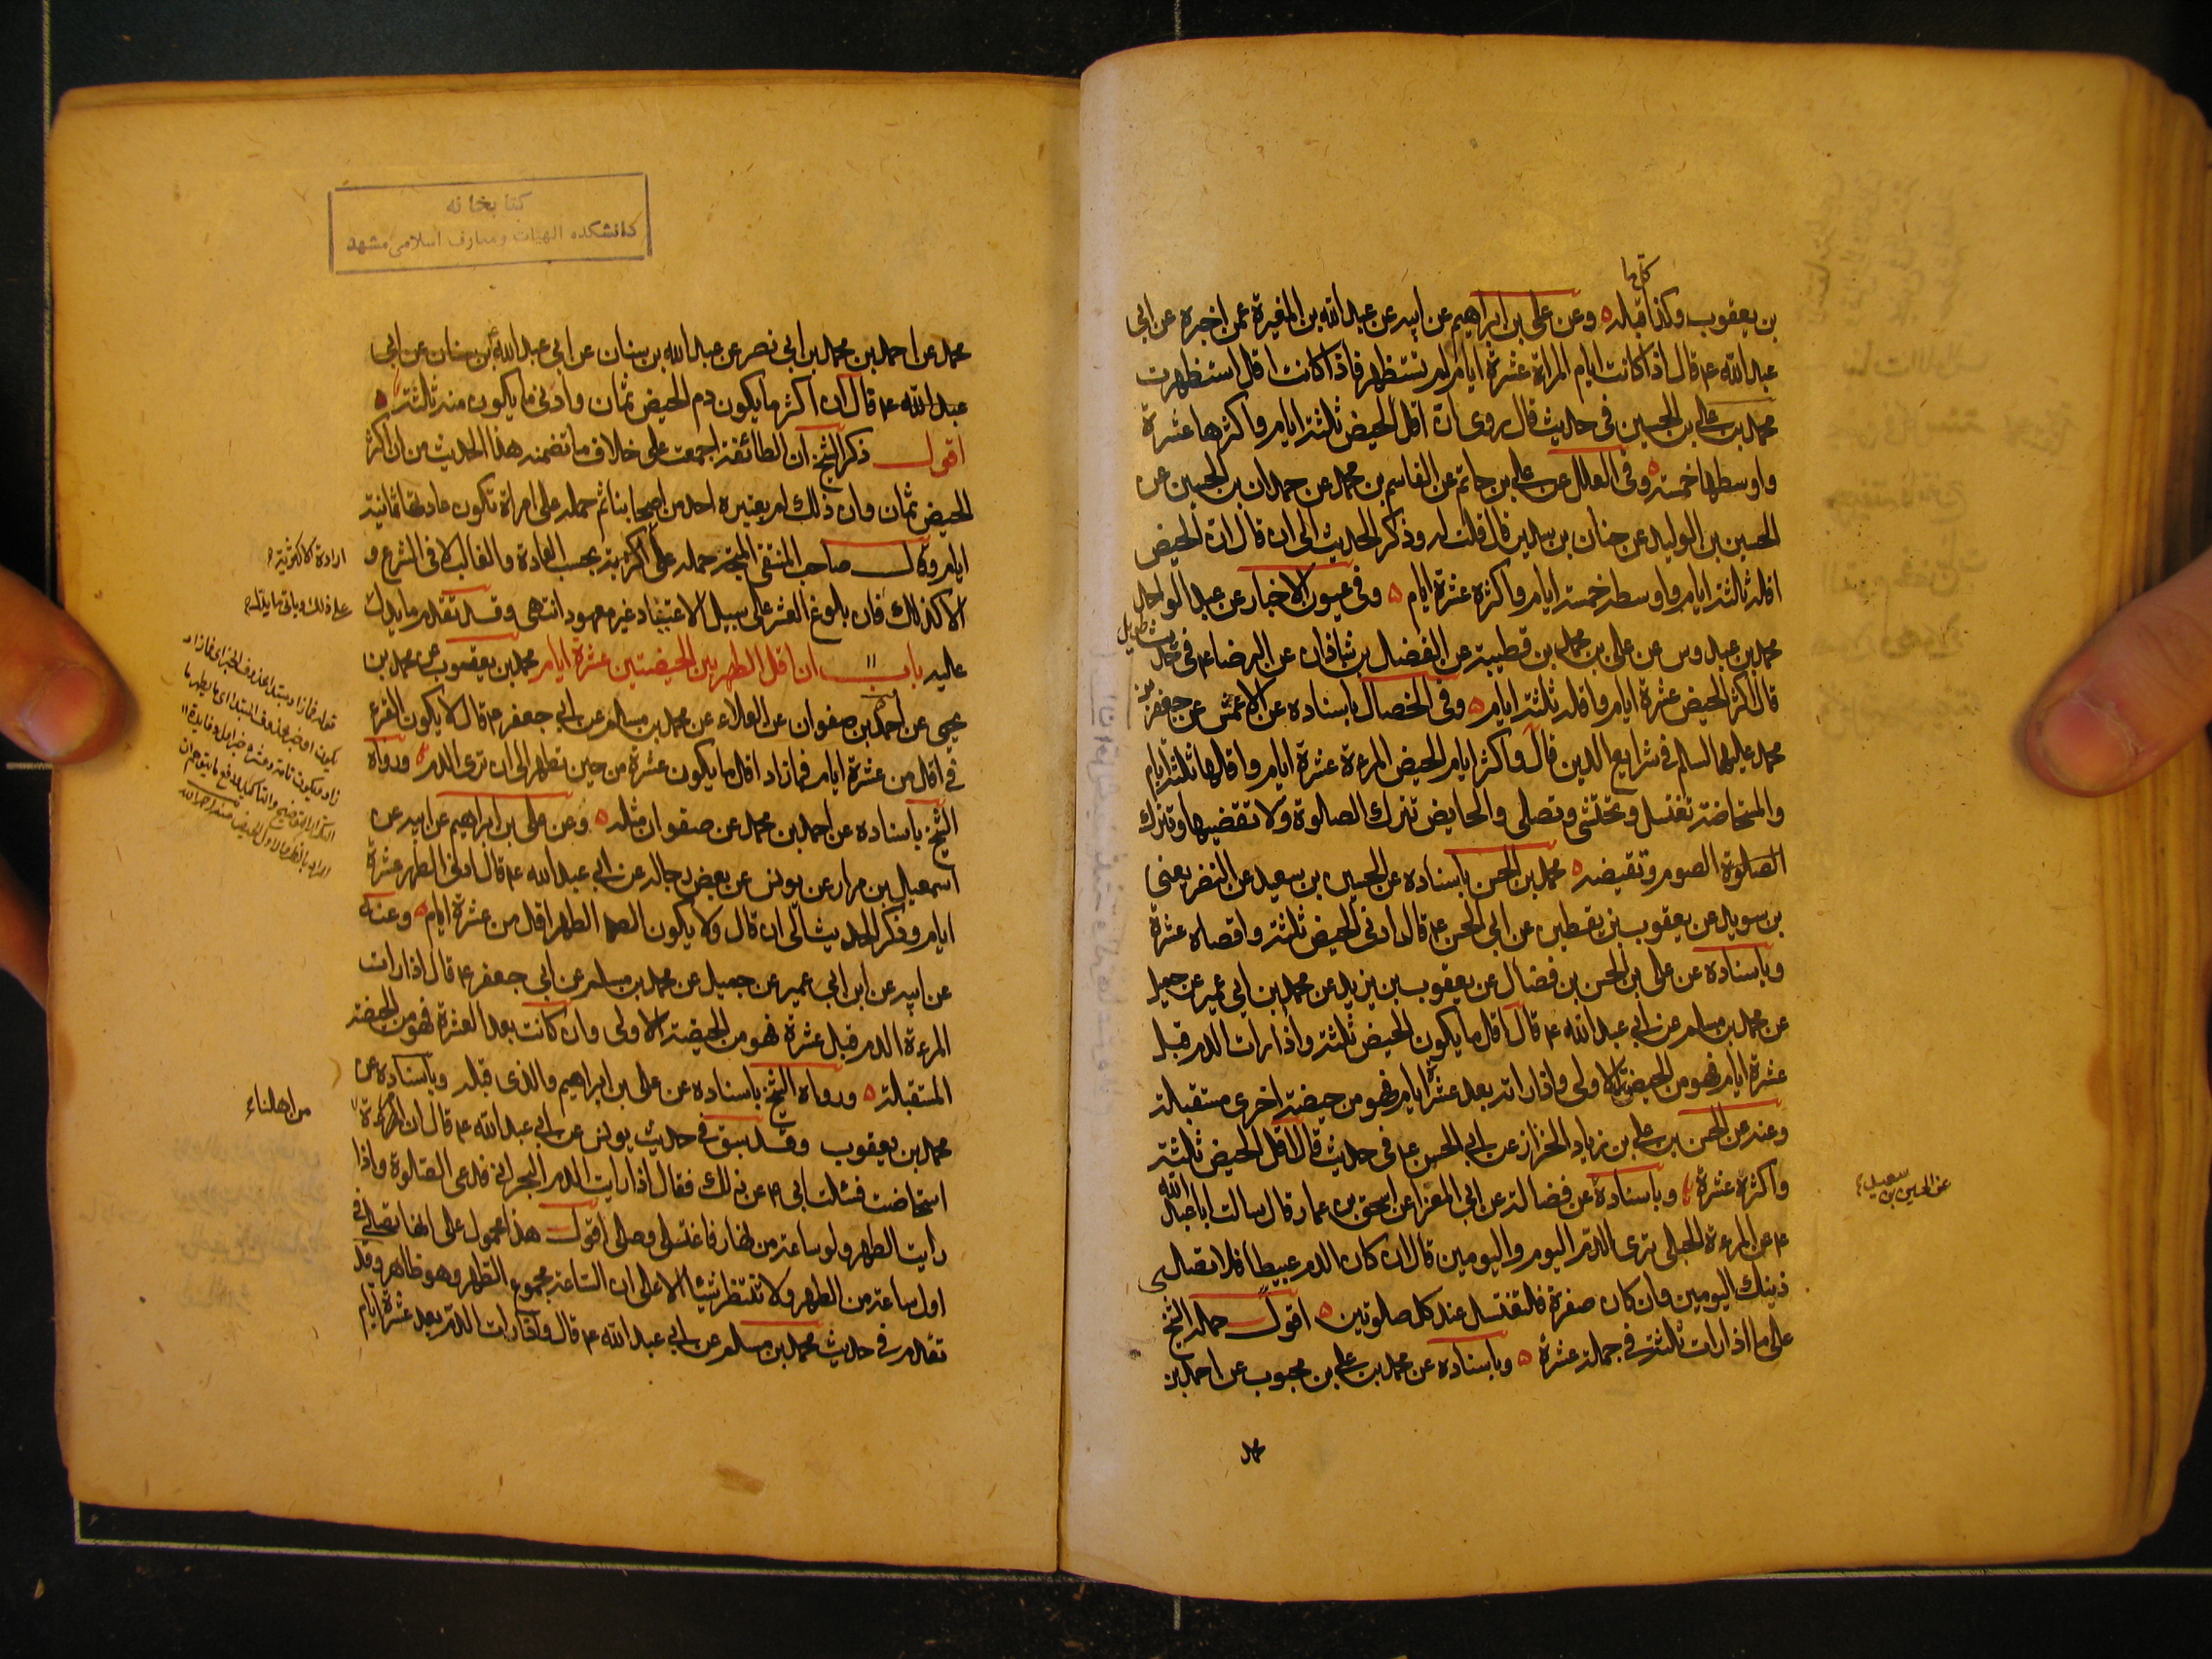 كلما
بن يعقوب وكذا قبله ه وعن على بن ابراهيم عن ابيه عن عبد الله بن المغيرة عمن اخبره عن ابى
عبد الله ع قال اذا كانت ايام المراة عشرة ايام لم تستظهر فاذا كانت اقل استظهرت
محمد بن على بن الحسين فى حديث قال روى ان اقل الحيض ثلثة ايام واكثرها عشرة
واوسطها خمسة ه وفى العلل عن على بن حاتم عن القاسم بن محمد عن حمدان بن الحسين عن
الحسين بن الوليد عن حنان بن سدير قال قلت له وذكر الحديث الى ان قال ان الحيض
اقله ثلثة ايام واوسطه خمسة ايام واكثره عشرة ايام ه وفى عيون الاخبار عن عبد الواحد
محمد بن عبدوس عن على بن محمد بن قطيبة عن الفضل بن شاذان عن الرضا ع فى حديث طويل
قال اكثر الحيض عشرة ايام واقله ثلثة ايام ه وفى الخصال باسناده عن الاعمش عن جعفر بن
محمد عليهما السلم فى شرايع الدين قال واكثر ايام الحيض المرءة عشرة ايام واقلها ثلثة ايام
والمستحاضة تغتسل وتحتشى وتصلى والحايض تترك الصلوة ولا تقضيها وتترك
الصلوة الصوم وتقيضه ه محمد بن الحسن باسناده عن الحسين بن سعيد عن النضر يعنى
بن سويد عن يعقوب بن يقطين عن ابى الحسن ع قال ادنى الحيض ثلثة واقصاه عشرة
وباسناده عن على بن الحسن بن فضال عن يعقوب بن يزيد عن محمد بن ابى عمير عن جميل
عن محمد بن مسلم عن ابى عبد الله ع قال اقل ما يكون الحيض ثلثة واذا رات الدم قبل
عشرة ايام فهو من الحيضة الاولى واذا راته بعد عشرة ايام فهو من حيضة اخرى مستقبلة
وعنه عن الحسن بن على بن زياد الخزاز عن ابى الحسن ع فى حديث قال اقل الحيض ثلثة
واكثره عشرة وباسناده عن فضالة عن ابى المغرا عن اسحق بن عمار قال سالت ابا عبد الله
عن الحسين بن سعيد
ع عن المرءة الحبلى ترى الدم اليوم واليومين قال ان كان الدم عبيطا فلا تصلى
ذينك اليومين وان كان صفرة فلتغتسل عند كل صلوتين ه اقول حمله الشيخ
على ما اذا رات ثلثة فى جملة عشرة ه وباسناده عن محمد بن على بن محبوب عن احمد بن
محمد
كتابخانه
دانشكده الهيات ومعارف اسلامى مشهد
محمد عن احمد بن محمد بن ابى نصر عن عبد الله بن سنان عن ابى عبد الله عن بن سنان عن ابى
عبد الله ع قال ان اكثر ما يكون دم الحيض ثمان وادنى ما يكون منه ثلثة ه
اقول ذكر الشيخ ان الطائفة اجمعت على خلاف ما تضمنه هذا الحديث من ان اكثر
الحيض ثمان وان ذلك لم يعتبره احد من اصحابنا ثم حمله على امراة تكون عادتها ثمانية
ايام وقال صاحب المنتقى المتجه حمله على اكثريته بحسب العادة والغالب لا فى الشرع و
ارادة الاكثرية
الا كذلك فان بلوغ العشر على سبيل الاعتياد غير معهود انتهى وقد تقدم ما يدل
على ذلك وياتى ما يدل
عليه باب ان اقل الطهر بين الحيضتين عشرة ايام محمد بن يعقوب عن محمد بن
يحيى عن احمد بن صفوان عن العلاء عن محمد بن مسلم عن ابى جعفر ع قال لا يكون القرء
فى اقل من عشرة ايام فما زاد اقل ما يكون عشرة من حين تطهر الى ان ترى الدم ورواه
الشيخ باسناده عن احمد بن محمد عن صفوان مثله ه وعن على بن ابراهيم عن ابيه عن
اسمعيل بن مرار عن يونس عن بعض رجاله عن ابى عبد الله ع قال ادنى الطهر عشرة
ايام وذكر الحديث الى ان قال ولا يكون الطهر اقل من عشرة ايام ه وعنه
عن ابيه عن ابن ابى عمير عن جميل عن محمد بن مسلم عن ابى جعفر ع قال اذا رات
المرءة الدم قبل عشرة فهو من الحيضة الاولى وان كانت بعد العشرة فهو من الحيضة
المستقبلة ه ورواه الشيخ باسناده عن على بن ابراهيم والذى قبله وباسناده عن
محمد بن يعقوب وقد سبق فى حديث يونس عن ابى عبد الله ع قال ان امرءة
من اهلنا
استحاضت فسئلت ابى ع عن ذلك فقال اذا رايت الدم البحرانى فدعى الصلوة واذا
رايت الطهر ولو ساعة من نهار فاغتسلى وصلى اقول هذا محمول على انها تصلى فى
اول ساعة من الطهر ولا تنتظر شيئا لا على ان الساعة مجموع الطهر وهو ظاهر وقد
تقدم فى حديث محمد بن مسلم عن ابى عبد الله ع قال واذا رات الدم بعد عشرة ايام